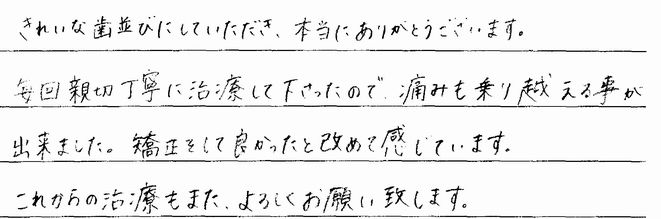 きれいな歯並びにしていただき、本当にありがとうございます。
毎回親切丁寧に治療して下さったので、痛みも乗り越える事が
出来ました。矯正をして良かったと改めて感じています。
これからの治療もまた、よろしくお願い致します。